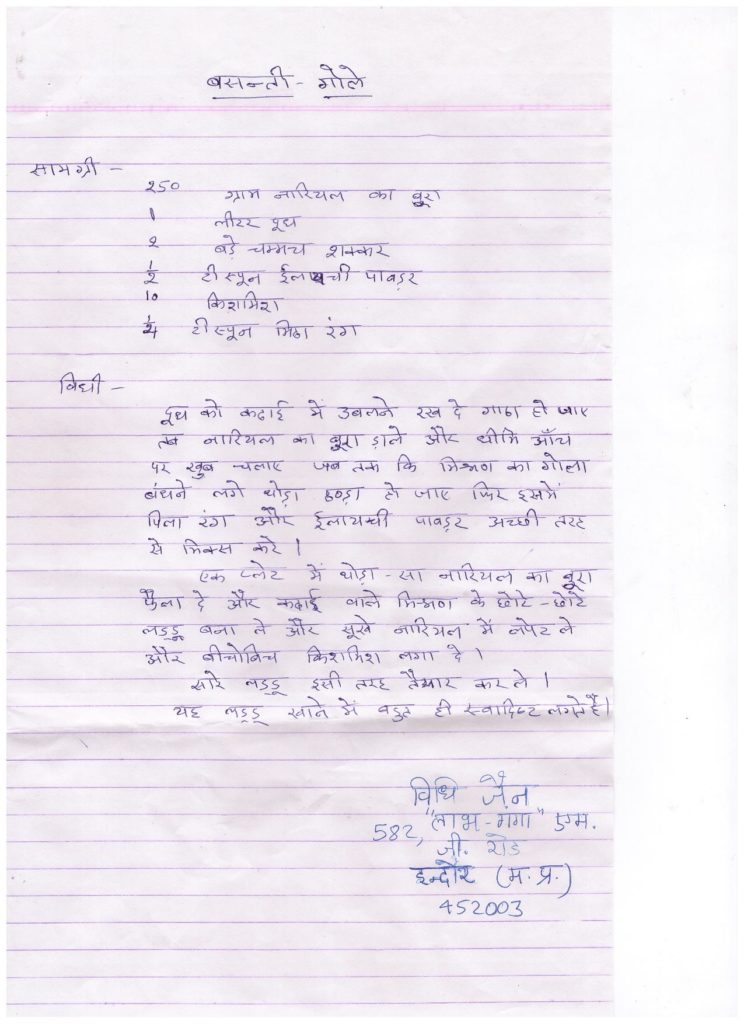 बसन्ती - गोले
सामग्री -
250 ग्राम नारियल का बूरा
1 लीटर दूध
2 बड़े चम्मच शक्कर
1/2 टी स्पून ईलायची पावड़र
10 किशमिश
1/4 टी स्पून मिठा रंग
विधी -
दूध को कढाई में उबलने रख दे गाढा हो जाए
तब नारियल का बूरा ड़ाले और धीमि आँच
पर खुब चलाए जब तक कि मिश्रण का गोला
बंधने लगे थोड़ा ठण्ड़ा हो जाए फिर इसमें
पिला रंग और ईलायची पावड़र अच्छी तरह
से मिक्स करे ।
एक प्लेट में थोड़ा-सा नारियल का बूरा
फैला दे और कढाई वाले मिश्रण के छोटे-छोटे
लड्डू बना ले और सूखे नारियल में लपेट ले
और बीचोबिच किशमिश लगा दे ।
सारे लड्डू इसी तरह तैयार कर ले ।
यह लड्डू खाने में बहुत ही स्वादिष्ट लगते हैं।
विधि जैन
582, "लाभ-गंगा" एम.
जी. रोड
इन्दौर (म.प्र.)
452003